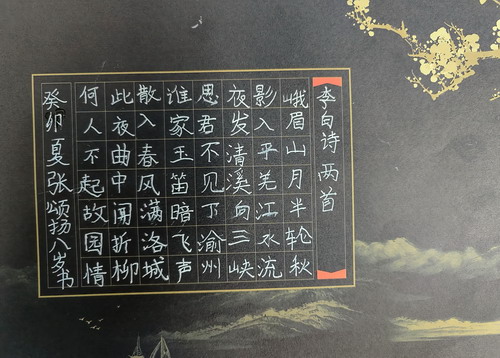 李白诗两首
峨眉山月半轮秋
影入平羌江水流
夜发清溪向三峡
思君不见下渝州
谁家玉笛暗飞声
散入春风满洛城
此夜曲中闻折柳
何人不起故园情
癸卯夏张颂扬八岁书